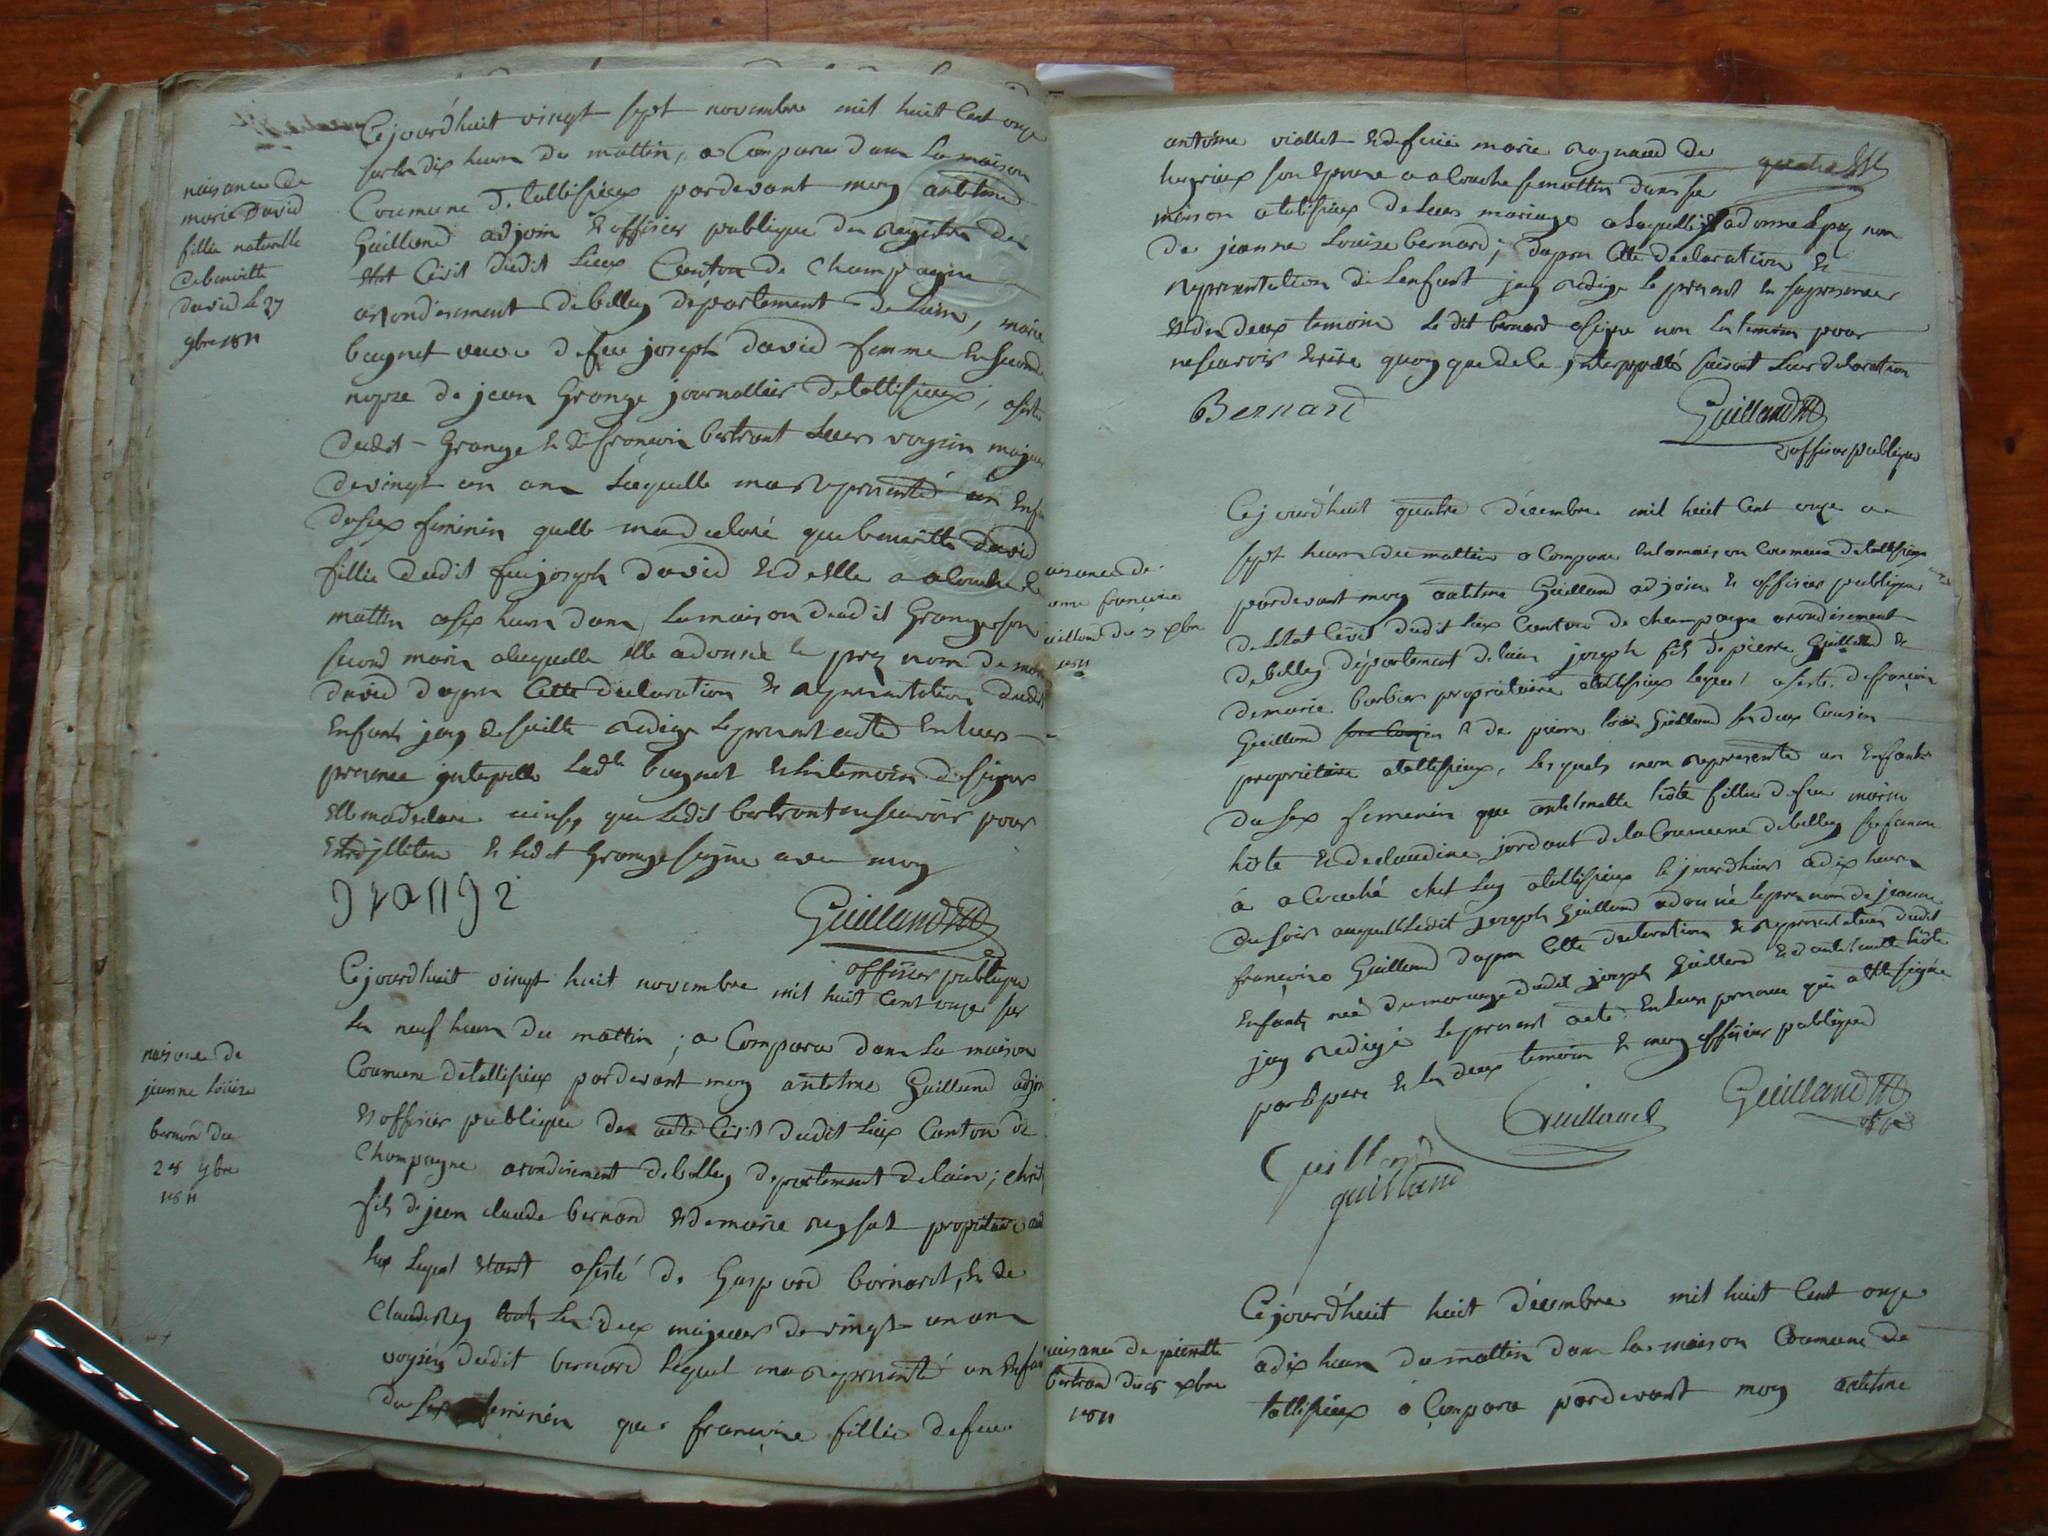 naisance de
marie David
fillie naturelle
de benoitte
david le 27
9bre 1811
Cejourd'huit vingt sept novembre mil huit Cent onze
sur les dix heures du mattin, a Comparu dans la maison
Commune de tallisieux pardevant moy antelme
Guilland adjoin et officier publique des registres de
etat Civil dudit Lieux Canton de Champagne
arondisement de belley département de Lain, marie
bugnet veuve de feu joseph David femme en seconde
nopse de jean Grange journallier de tallisieux, asisté
dudit Grange et de françois bertrant leurs voysin majeur
de vingt un ans Laquelle ma representé un enfan
du sex feminin quelle ma declaré que benoitte David
fillie dudit feu joseph David et delle a alouché le
mattin a six heures dans la maison dudit Grange son
second maris alaquelle elle a donné le prez nom de marie
david dapres Cette declaration et representation dudit
Enfant jay de suitte redigé le present acte En leurs
presence jnterpellé Ladte bugnet et les temoins de signer
elle ma declaré ainsy que ledit bertrant ne scavoir pour
Etre jlliteré et ledit Grange signe avec moy
grange
Guilland
officier publique
naisance de
jeanne Louise
bernard du
28 9bre
1811
Cejourd'huit vingt huit novembre mil huit Cent onze sur
Les neuf heures du mattin ; a Comparu dans la maison
Commune de tallisieux pardevant moy antelme Guilland adjoin
et officier publique des acte Civil dudit Lieux Canton de
Champagne arondisement de belley departement de lain ;
fils de jean claude bernard et de marie reysat propriétaire
Lieux Lequel etant asisté de Gaspard bornard, et de
Claude Rey tout Les deux majeurs de vingt un ans
voysins dudit bernard Lequel ma representé un Enfan
du Sex feminin que françoise fillie de feu
antoine viallet et de feüe marie reynaud de
hugieux son epouse a alouché se mattin dans sa
maison a talisieux de leurs mariage a laquelle il a donné le prez nom
de jeanne Louise bernard ; dapres Cette declaration et
representation de Lenfant jay redigé le present en sa presence
et des deux temoins Le dit bernard a signe non les temoins pour
ne scavoir Ecrire quoy que de le jnterpellé suivant leurs declaration
Bernard
Guilland
officier publique
naisance de
jeanne françoise
guilland du 3 xbre
1811
Cejourd'huit quatre décembre mil huit Cent onze a
sept heures du mattin a Comparu En la maison Commune de tallisieux
pardevant moy antelme Guilland adjoin et officier publique
de letat Civil dudit Lieux Canton de champagne arondisement
de belley département de lain joseph fils de pierre Guilland et
de marie barbier propriétaire a tallisieux lequel asisté de françois
Guilland son Cousin et de pierre Guilland ses deux Cousin
propriétaire a tallisieux, lesquels mon representé un Enfant
du sex femenin que antelmette hôte fillie de feu marin
hôte et de claudine jordant de la Commune de belley sa femme
à alouché chet luy a tallisieux le jourdhier a dix heures
du soir auquelle ledit joseph Guilland a donné le prez nom de jeanne
françoise Guilland dapres Cette declaration et representation dudit
Enfant, née du mariage dudit joseph Guilland et dantelmette hôte
jay redigé le present acte En leurs presence qui a été signé
par le pere et les deux temoins et moy officier publique
Guilland
Guilland
Guilland
guilland
naisance de pierrette
bertrand du 8 xbre
1811
Cejourd'huit huit décembre mil huit Cent onze
a dix heures du mattin dans la maison Commune de
tallisieux a Comparu pardevant moy antelme